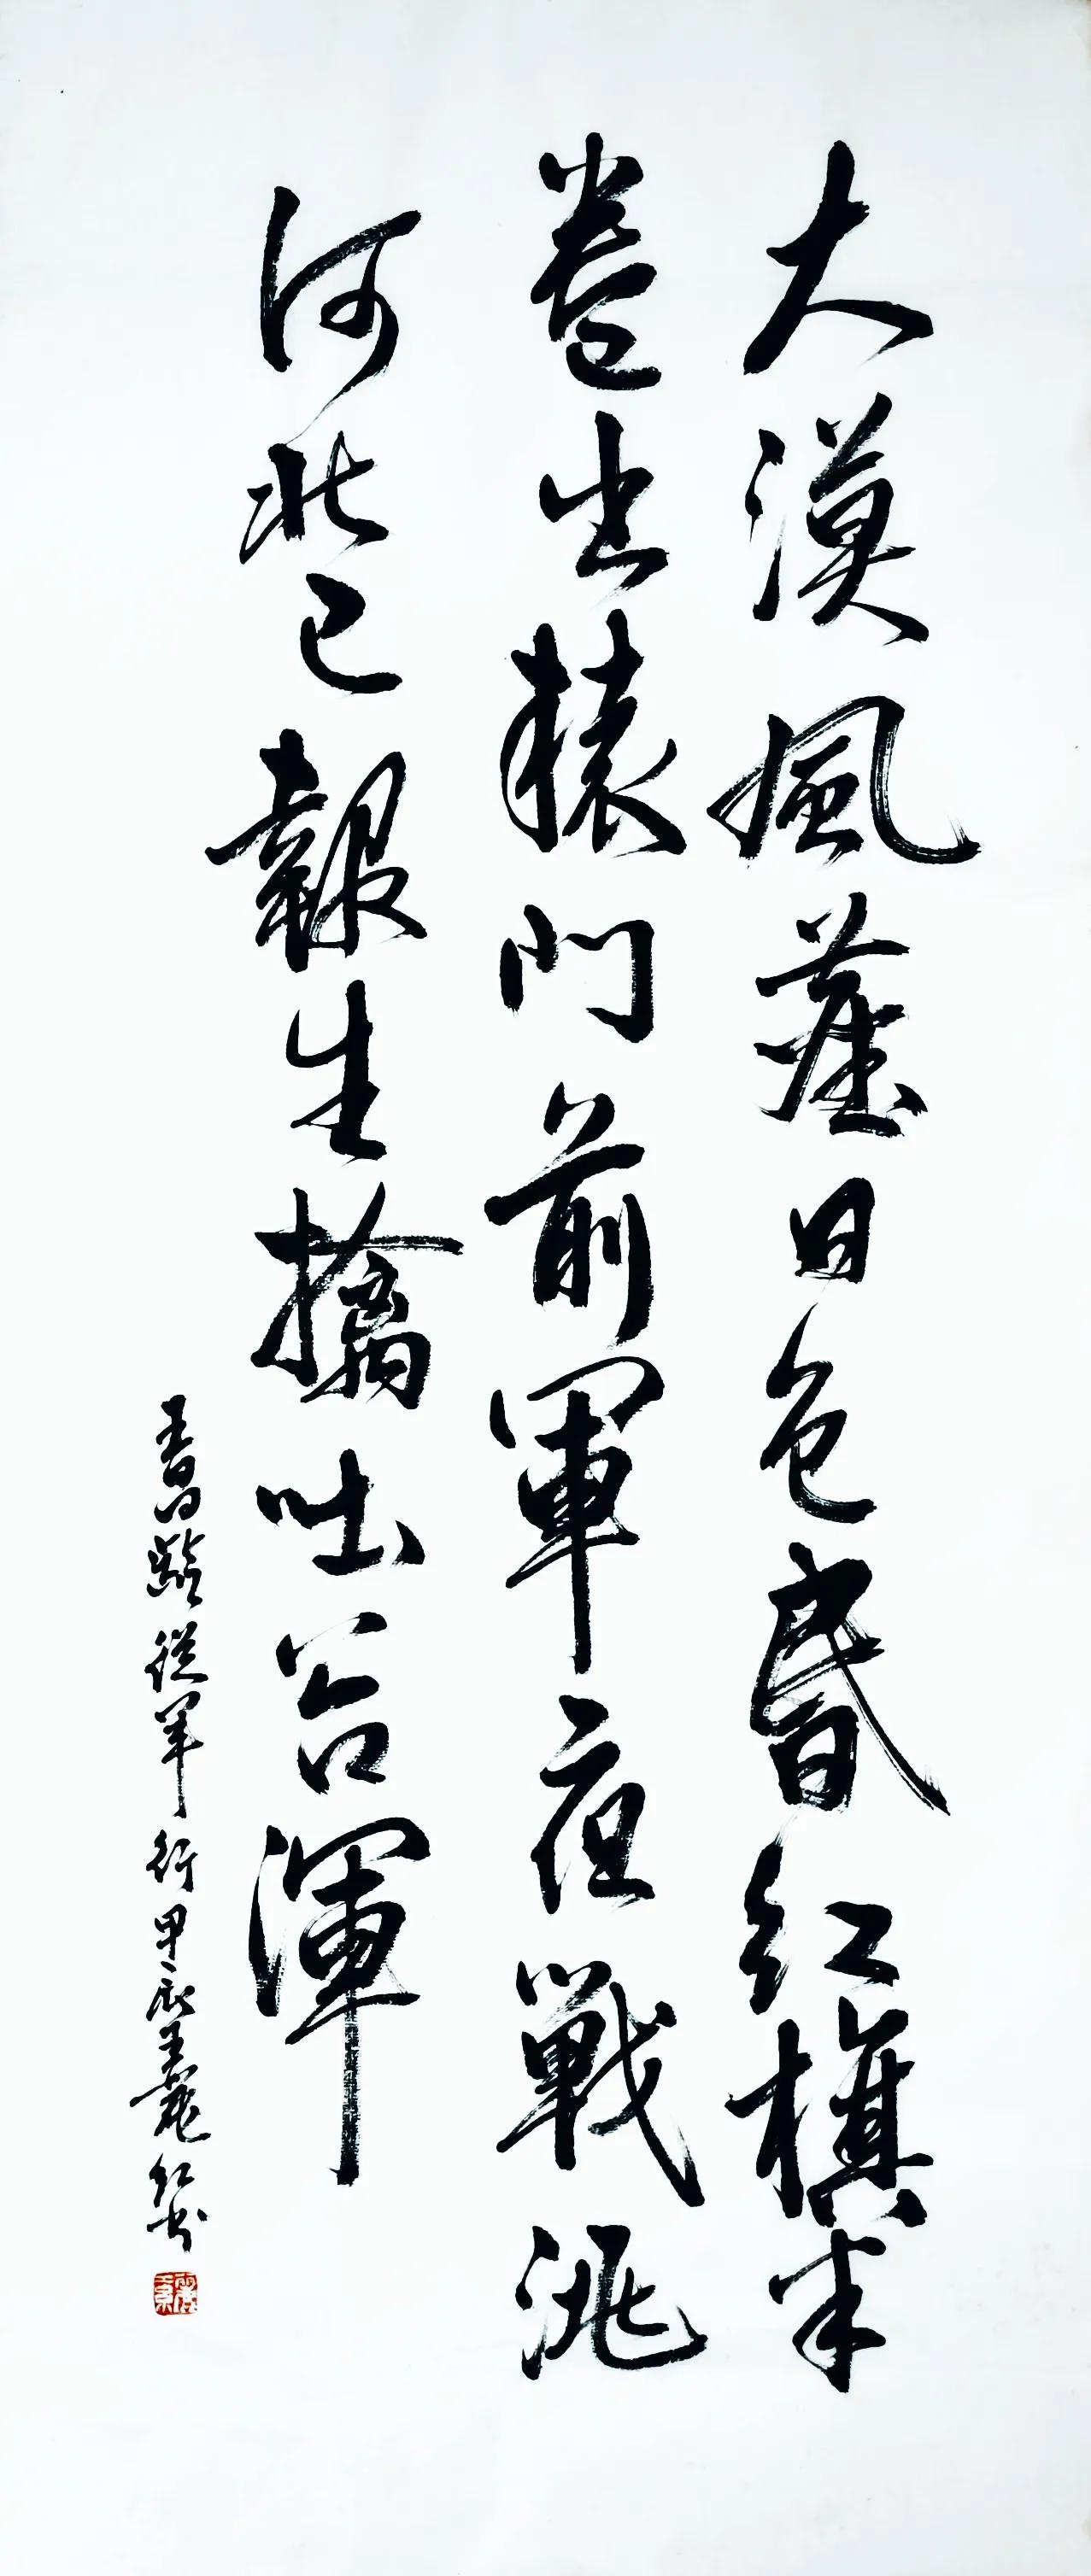 大漠風塵日色昏紅旗半
卷出轅門前軍夜戰洮
河北已報生擒吐谷渾
王昌齡從軍行甲辰王麗紅書